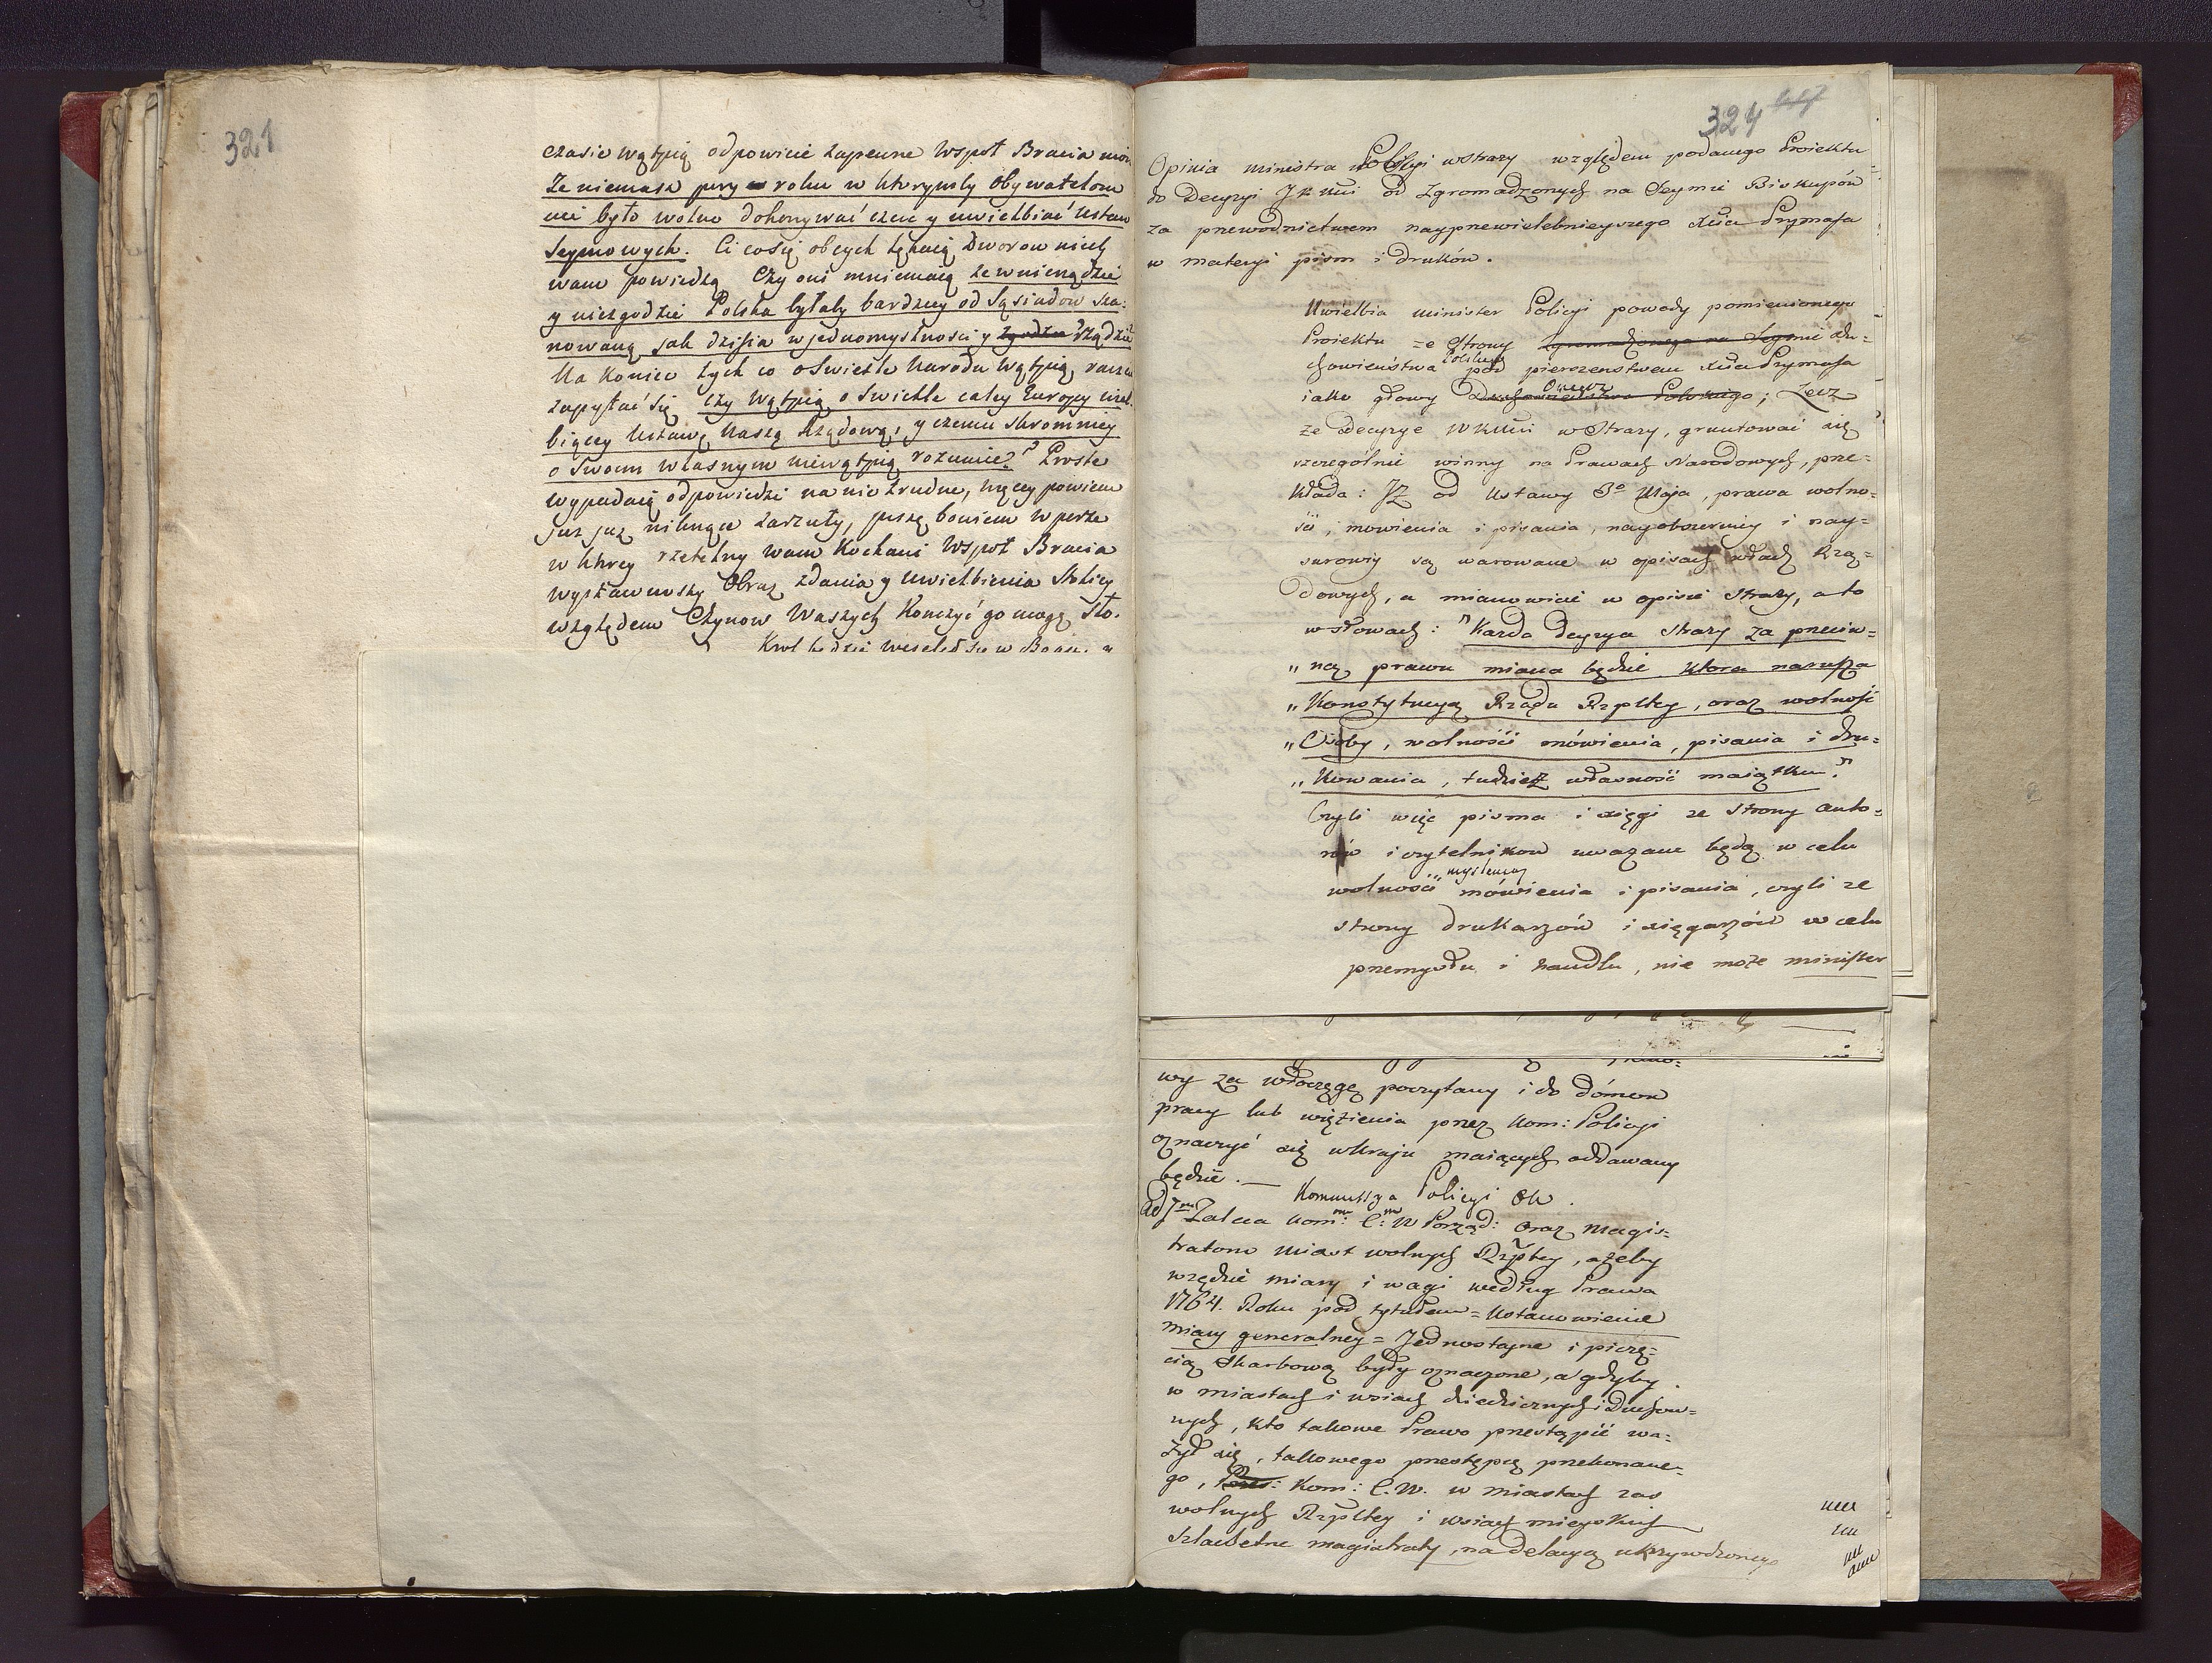 321
czasie wątpią odpowicie zapewne Wspoł Bracia moi
Ze niemasz pory roku w ktoreymby Obywatelom
nie było wolno dokonywać czcić y uwielbiać Ustaw
Seymowych. Ci co się obcych lękaią Dworow niech
wam powiedzą Czy oni mniemaią ze w nierządzie
y niezgodzie Polska byłaby bardziey od Sąsiadow sza:
nowaną jak dzisia w jednomyslnosci y zgodzie Rządzie
Na koniec tych co o Swietle Narodu Wątpią, raczcie
zapytać się czy Wątpią o Swietle całey Europy uwiel.
biącey Ustawę Naszą Rządową, y czemu skromniey
o Swoim własnym niewątpią rozumie? Proste
wypadaią odpowiedzi na nie trudne, więcey powiem
juz juz niknące zarzuty, piszę bowiem w porze
w ktorey rzetelny wam Kochani Wspoł Bracia
wystawuiący Obraz zdania y uwielbienia Stolicy
względem Czynow Waszych Konczyć go mogę Sło.
Krol będzie weselił się w Bogu. "
324
Opinia ministra Policyi w strazy względem podanego Proiektu
do Decyzyi JKMci od Zgromadzonych na Seymie Biskupów
za przewodnictwem nayprzewielebnieyszego Xcia Prymasa
w materyi pism i druków.
Uwielbia minister Policyi powody pomienionego
Proiektu ze Strony zgromadzonego na Seymie du=
chowieństwa Polskiego pod pierszenstwem Xcia Prymasa
iako głowy Onegoż Duchowieństwa Polskiego; Lecz
ze Decyzye WKMci w Strazy, gruntować się
szczególnie winny na Prawach Narodowych, prze=
kłada: Jż od Ustawy 3º Maja, prawa wolno=
ści, mowienia i pisania, nayobszerniey i nay=
surowiy są warowane w opisach władz Rzą=
dowych, a mianowicie w opisie Strazy, a to
w słowach: "Kazda decyzya Strazy za przeciw=
"ną prawu miana będzie ktora narusza
"Konstytucyą Rządu Rzpltey, oraz wolność
"Osoby, wolności mówienia, pisania i dru=
"kowania, tudzież własność maiątku."
Czyli więc pisma i xięgi ze strony auto=
rów i czytelnikow uważane będą w celu
wolności myślenia mówienia i pisania, czyli ze
strony drukarzów i xięgarzów w celu
przemysłu i handlu, nie może minister
wy za włoczęgę poczytany i do dómow
pracy lub więzienia przez Kom: Policyi
oznaczyć się w kraju maiących oddawany
będzie. — Kommissya Policyi ON.
Ad 7mu Zaleca Kom: C: W Porząd: oraz Magis=
tratom Miast wolnych Rzpltey, azeby
wszędzie miary i wagi według Prawa
1764. Roku pod tytułem = Ustanowienie
miary generalney = Jednostayne i pieczę=
cią Skarbową były oznaczone, a gdyby
w miastach i wsiach dziedzicznych i Duchow=
nych, kto takowe Prawo przestąpić wa=
żył się, takowego przestępcę przekonane=
go, Kom: C. W. w miastach zas
wolnych Rzpltey i wsiach mieyskich
Szlachetne magistraty, na delacyą ukrzywdzonego